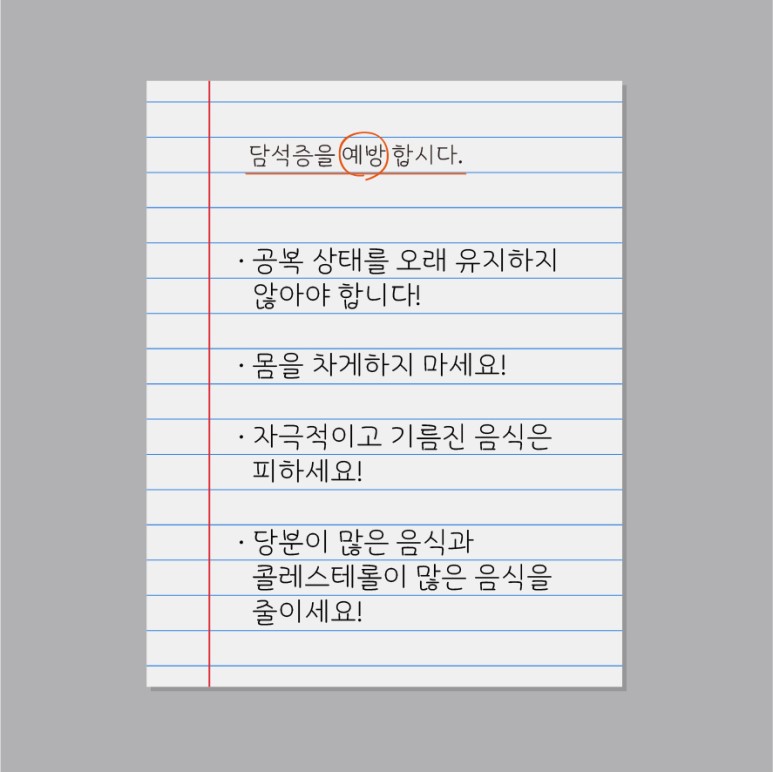 담석증을 예방합시다.
· 공복 상태를 오래 유지하지
않아야 합니다!
· 몸을 차게하지 마세요!
· 자극적이고 기름진 음식은
피하세요!
· 당분이 많은 음식과
콜레스테롤이 많은 음식을
줄이세요!